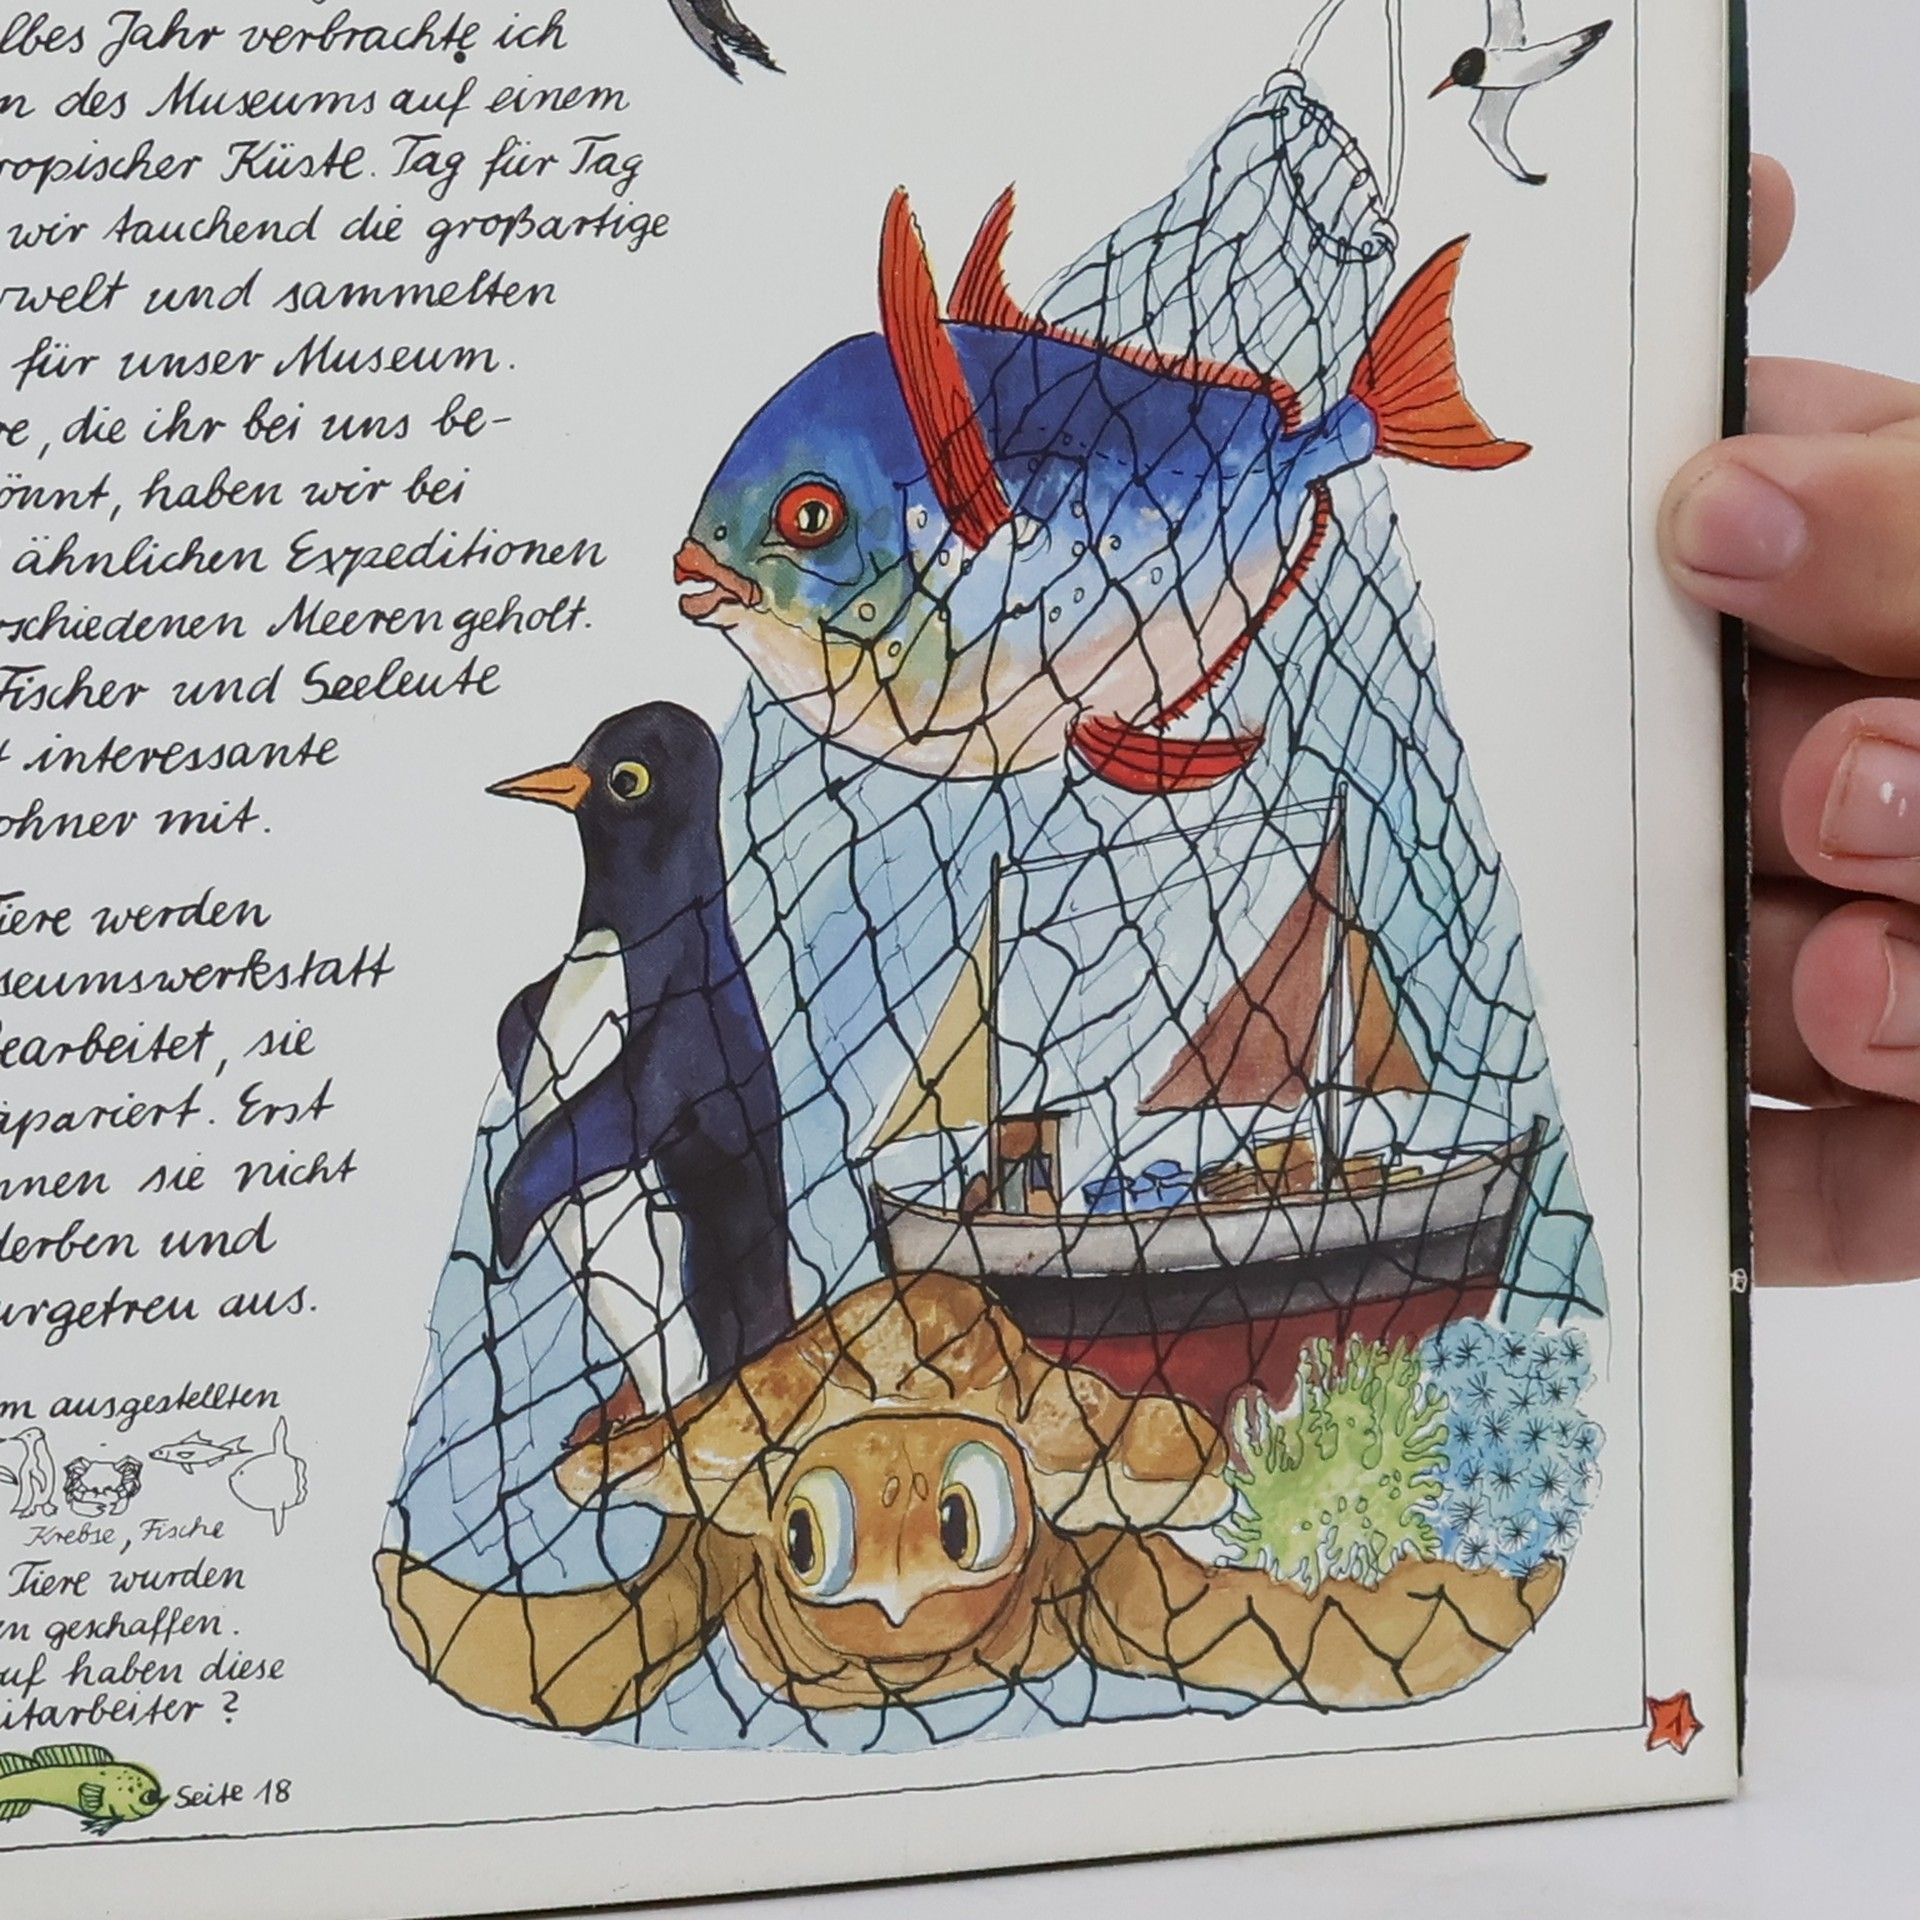 lbes Jahr verbrachte ich
des Museums auf einem
ropischer Küste. Tag für Tag
wir tauchend die großartige
welt und sammelten
für unser Museum.
re, die ihr bei uns be-
önnt, haben wir bei
ähnlichen Expeditionen
rschiedenen Meeren geholt.
Fischer und Seeleute
interessante
ohner mit.
iere werden
seumswerkstatt
earbeitet, sie
äpariert. Erst
nnen sie nicht
derben und
urgetreu aus.
m ausgestellten
Krebse, Fische
Tiere wurden
en geschaffen.
uf haben diese
itarbeiter?
Seite 18
1